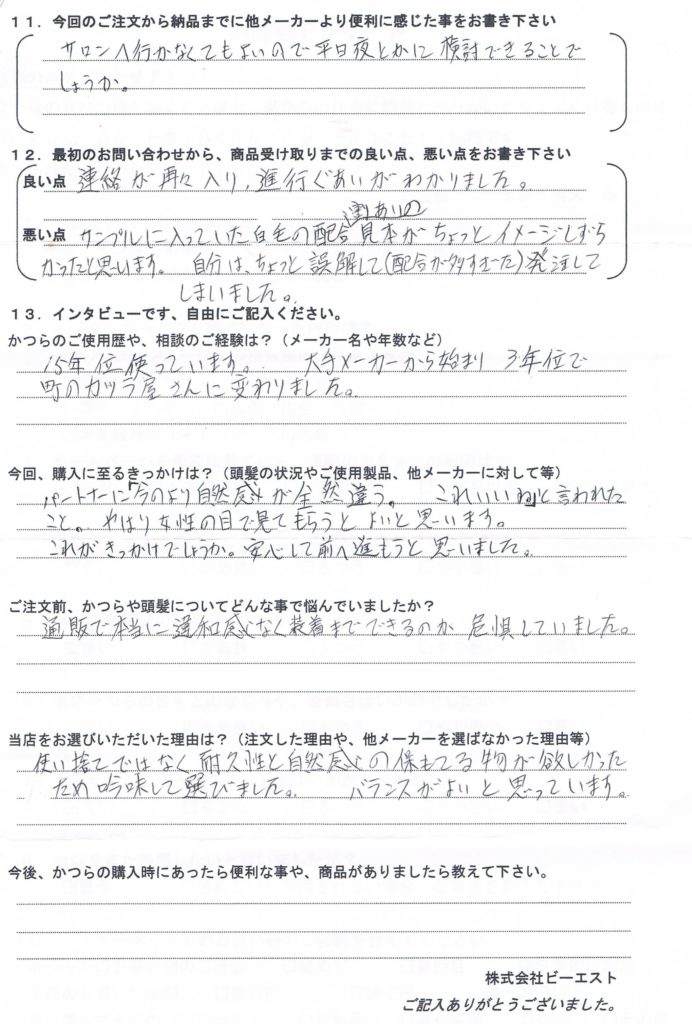 １１．今回のご注文から納品までに他メーカーより便利に感じた事をお書き下さい
サロンへ行かなくてもよいので平日夜とかに検討できることで
しょうか。
１２．最初のお問い合わせから、商品受け取りまでの良い点、悪い点をお書き下さい
良い点 連絡が再々入り、進行ぐあいがわかりました。
悪い点 サンプルに入っていた白毛の配合見本がちょっとイメージしずら
かったと思います。 自分は、ちょっと誤解して(配合が多すぎた)発注して
しまいました。
１３．インタビューです、自由にご記入ください。
かつらのご使用歴や、相談のご経験は？（メーカー名や年数など）
15年位使っています。 大手メーカーから始まり 3年位で
町のカツラ屋さんに変わりました。
今回、購入に至るきっかけは？（頭髪の状況やご使用製品、他メーカーに対して等）
パートナーに「今のより自然感が全然違う。 これいいね」と言われた
こと。 やはり女性の目で見てもらうとよいと思います。
これがきっかけでしょうか。安心して前へ進もうと思いました。
ご注文前、かつらや頭髪についてどんな事で悩んでいましたか？
通販で本当に違和感なく装着までできるのか 危惧していました。
当店をお選びいただいた理由は？（注文した理由や、他メーカーを選ばなかった理由等）
使い捨てではなく耐久性と自然感の保もてる物が欲しかった
ため吟味して選びました。 バランスがよいと思っています。
今後、かつらの購入時にあったら便利な事や、商品がありましたら教えて下さい。
株式会社ビーエスト
ご記入ありがとうございました。